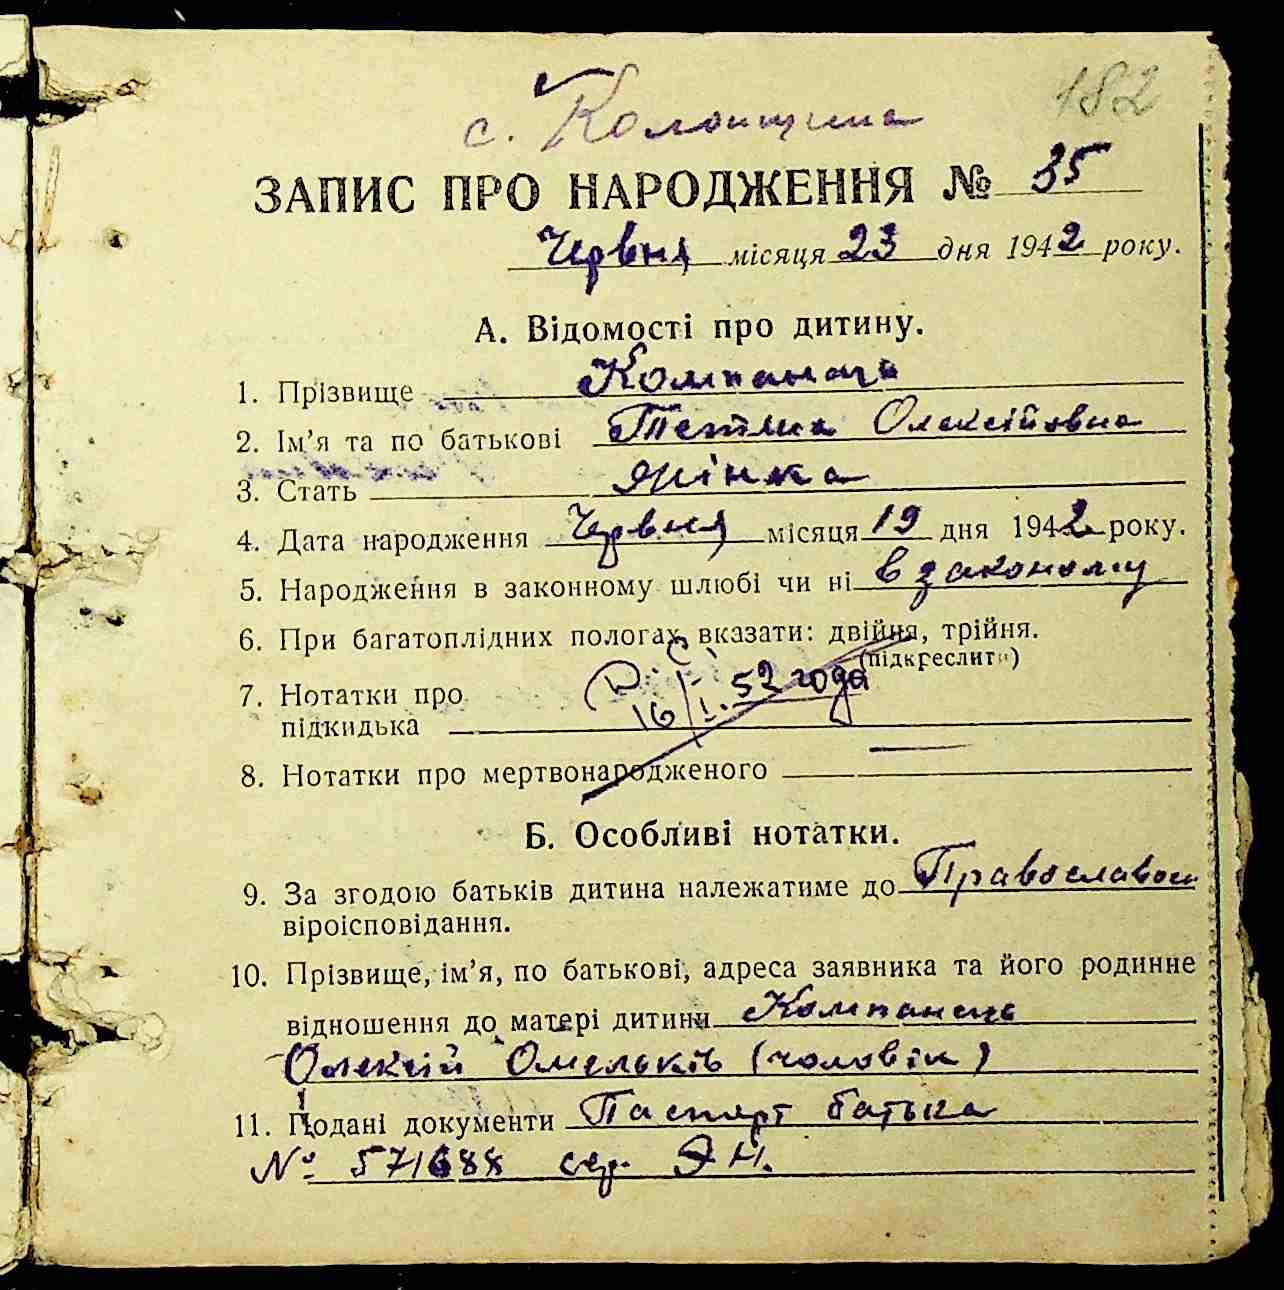 182
с. Колонщина
ЗАПИС ПРО НАРОДЖЕННЯ № 35
Червня місяця 23 дня 1942 року.
А. Відомості про дитину.
1. Прізвище Компанець
2. Ім'я та по батькові Тетяна Олексіївна
3. Стать жінка
4. Дата народження Червня місяця 19 дня 1942 року.
5. Народження в законному шлюбі чи ні в законому
6. При багатоплідних пологах вказати: двійня, трійня.
(підкреслити)
7. Нотатки про
16/I. 52 года
підкидька
8. Нотатки про мертвонародженого —
Б. Особливі нотатки.
9. За згодою батьків дитина належатиме до Православном
віроісповідання.
10. Прізвище, ім'я, по батькові, адреса заявника та його родинне
відношення до матері дитини Компанець
Олексій Омельків (чоловік)
11. Подані документи Паспорт батька
№ 571688 сер. ЭН.